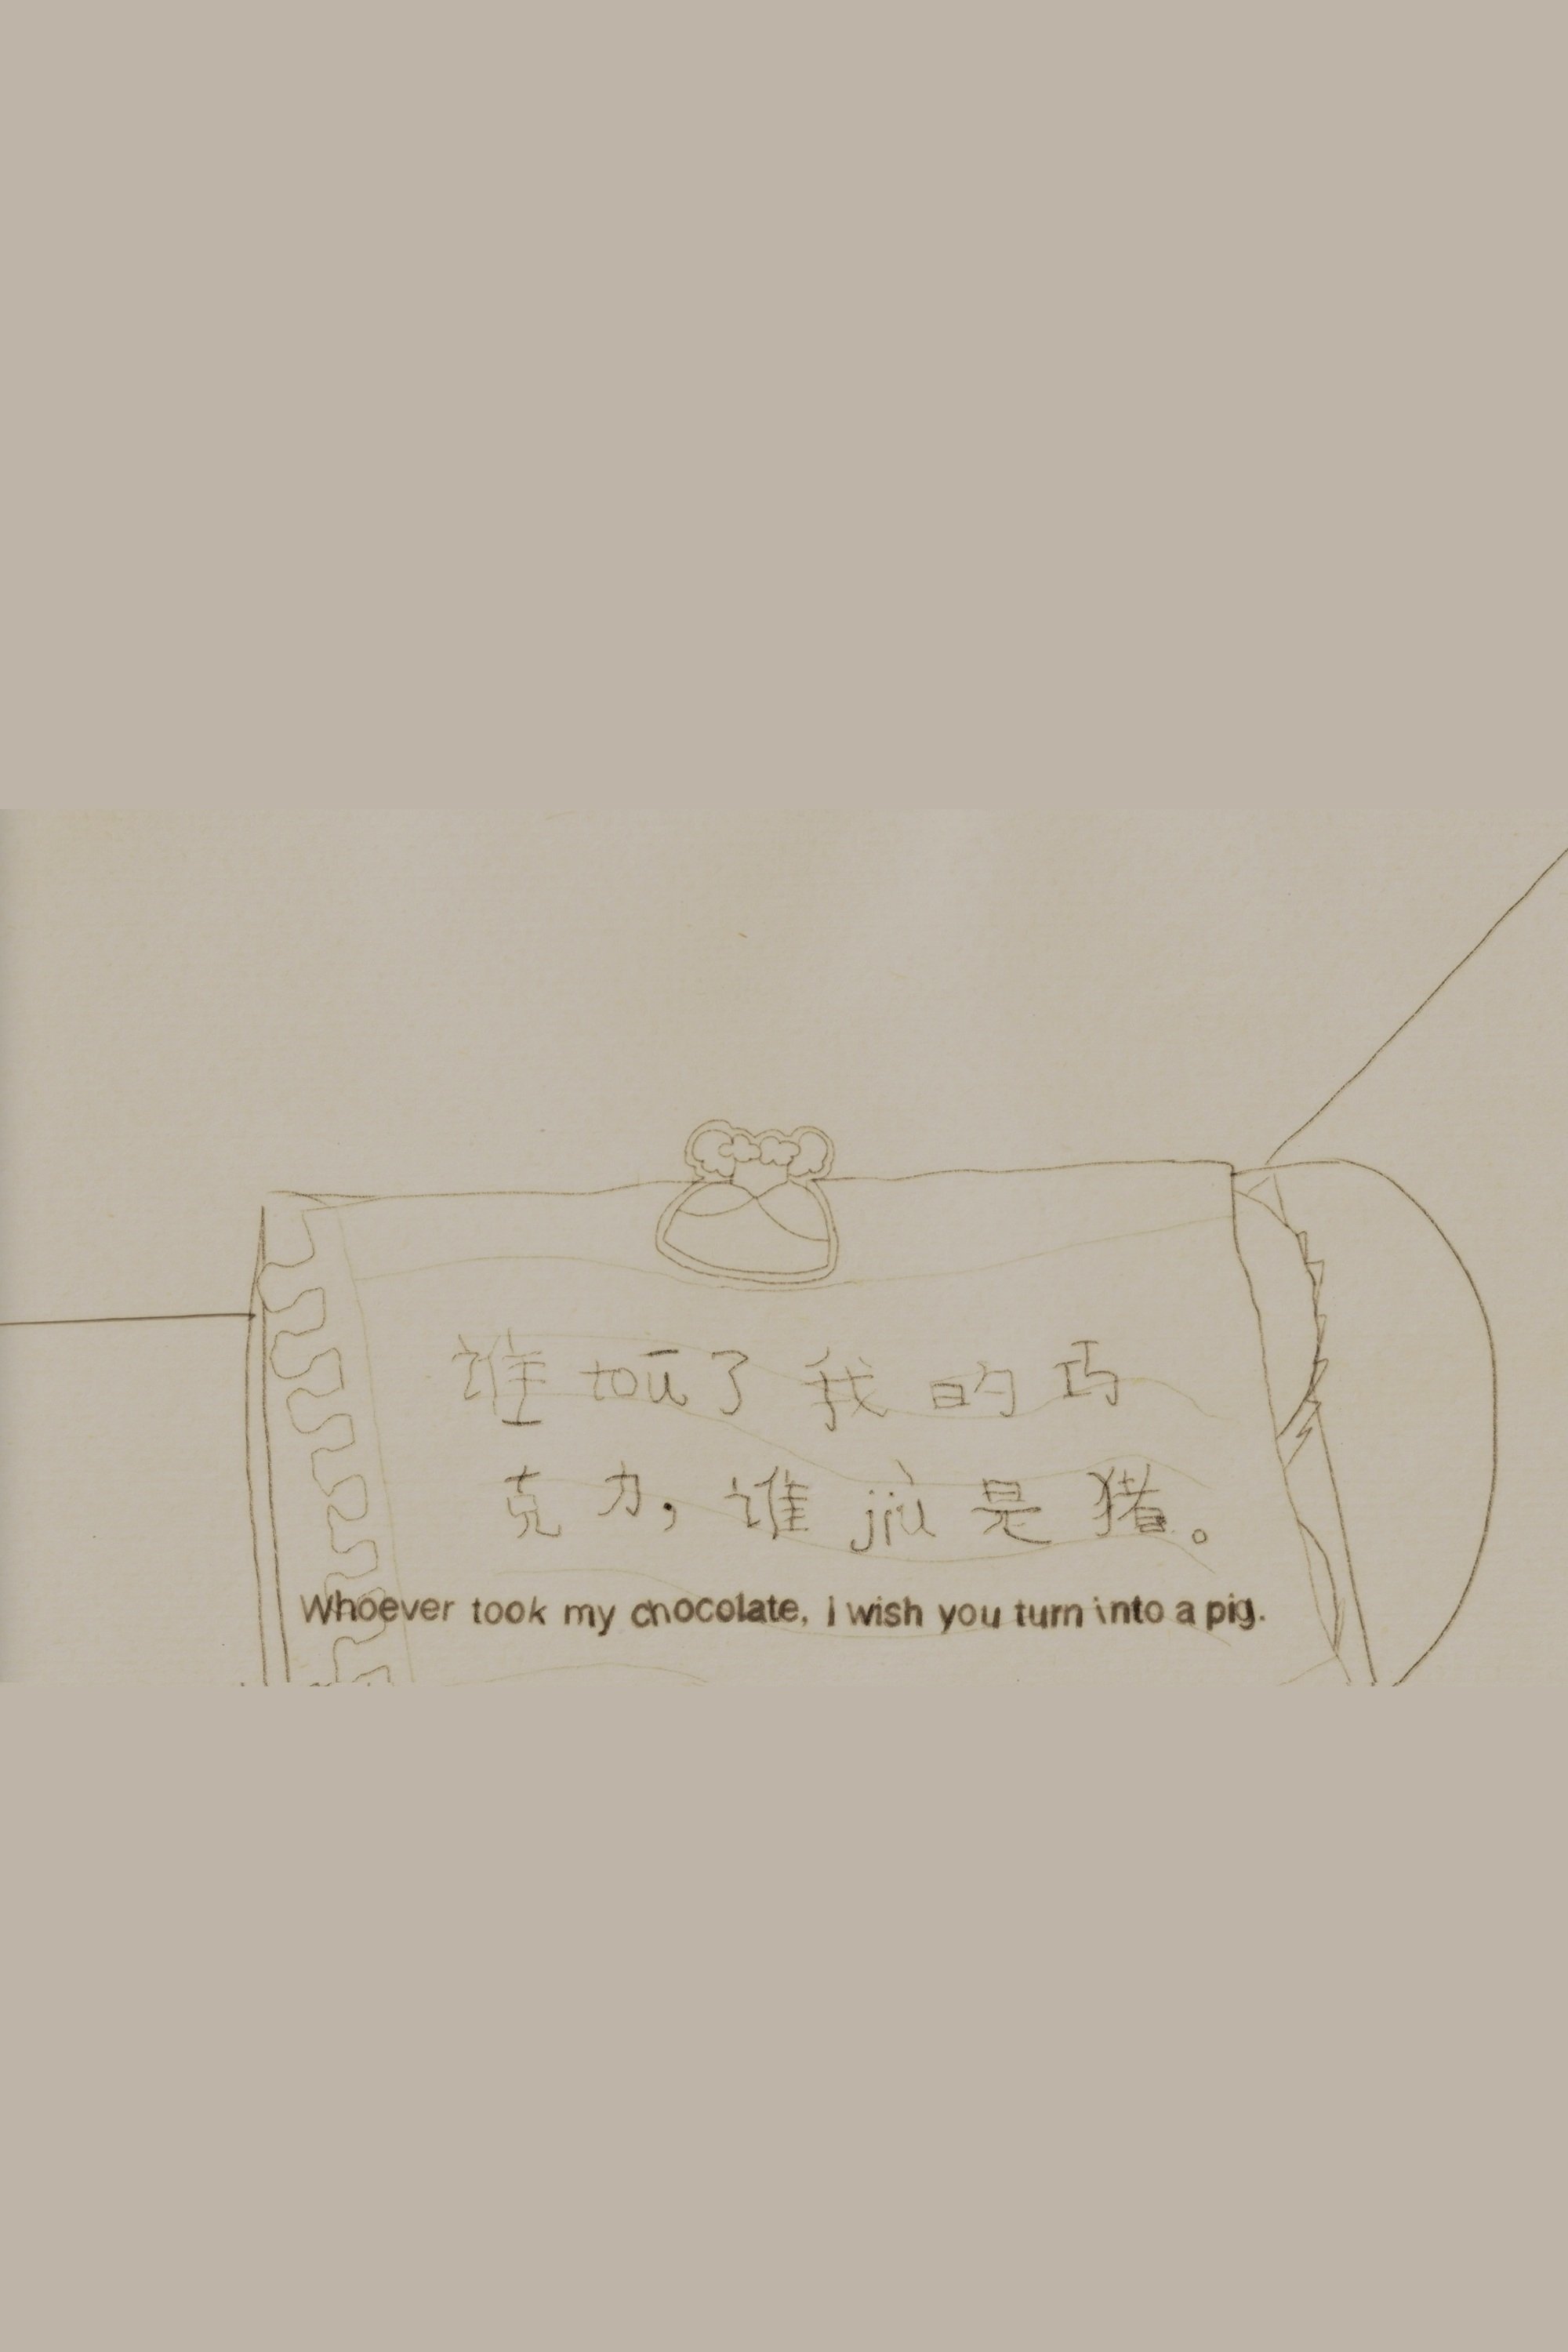 谁 toū了 我 的 巧
克 力，谁 jiù 是 猪。
Whoever took my cnocolate, I wish you turn into a pig.